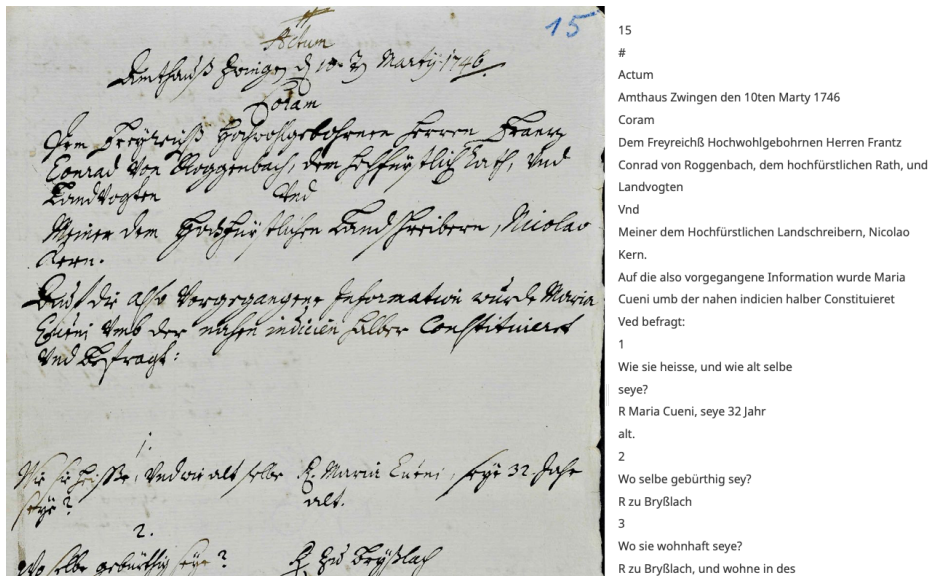 15
#
Actum
Amthauß Zwingen d. 10. Marty 1746.
Coram
Dem Freyreichß Hochwohlgebohrnen Herren Frantz
Conrad Von Roggenbach, dem hochfürstlich Rath, Vnd
Landvogten Vnd
Meiner dem Hochfürstlichen Landschreibern, Nicolao
Kern.
Auf die also Vorgegangene Information wurde Maria
Cueni Vmb der nahen indicien halber Constituiert
Vnd befragt:
1.
Wie sie heisse, Vnd wie alt selbe
seye?
R. Maria Cueni, seye 32 Jahr
alt.
2.
Wo selbe gebürthig seye?
R. Zu Bryßlach
15
#
Actum
Amthaus Zwingen den 10ten Marty 1746
Coram
Dem Freyreichß Hochwohlgebohrnen Herren Frantz
Conrad von Roggenbach, dem hochfürstlichen Rath, und
Landvogten
Vnd
Meiner dem Hochfürstlichen Landschreibern, Nicolao
Kern.
Auf die also vorgegangene Information wurde Maria
Cueni umb der nahen indicien halber Constituieret
Ved befragt:
1
Wie sie heisse, und wie alt selbe
seye?
R Maria Cueni, seye 32 Jahr
alt.
2
Wo selbe gebürthig sey?
R zu Bryßlach
3
Wo sie wohnhaft seye?
R zu Bryßlach, und wohne in des